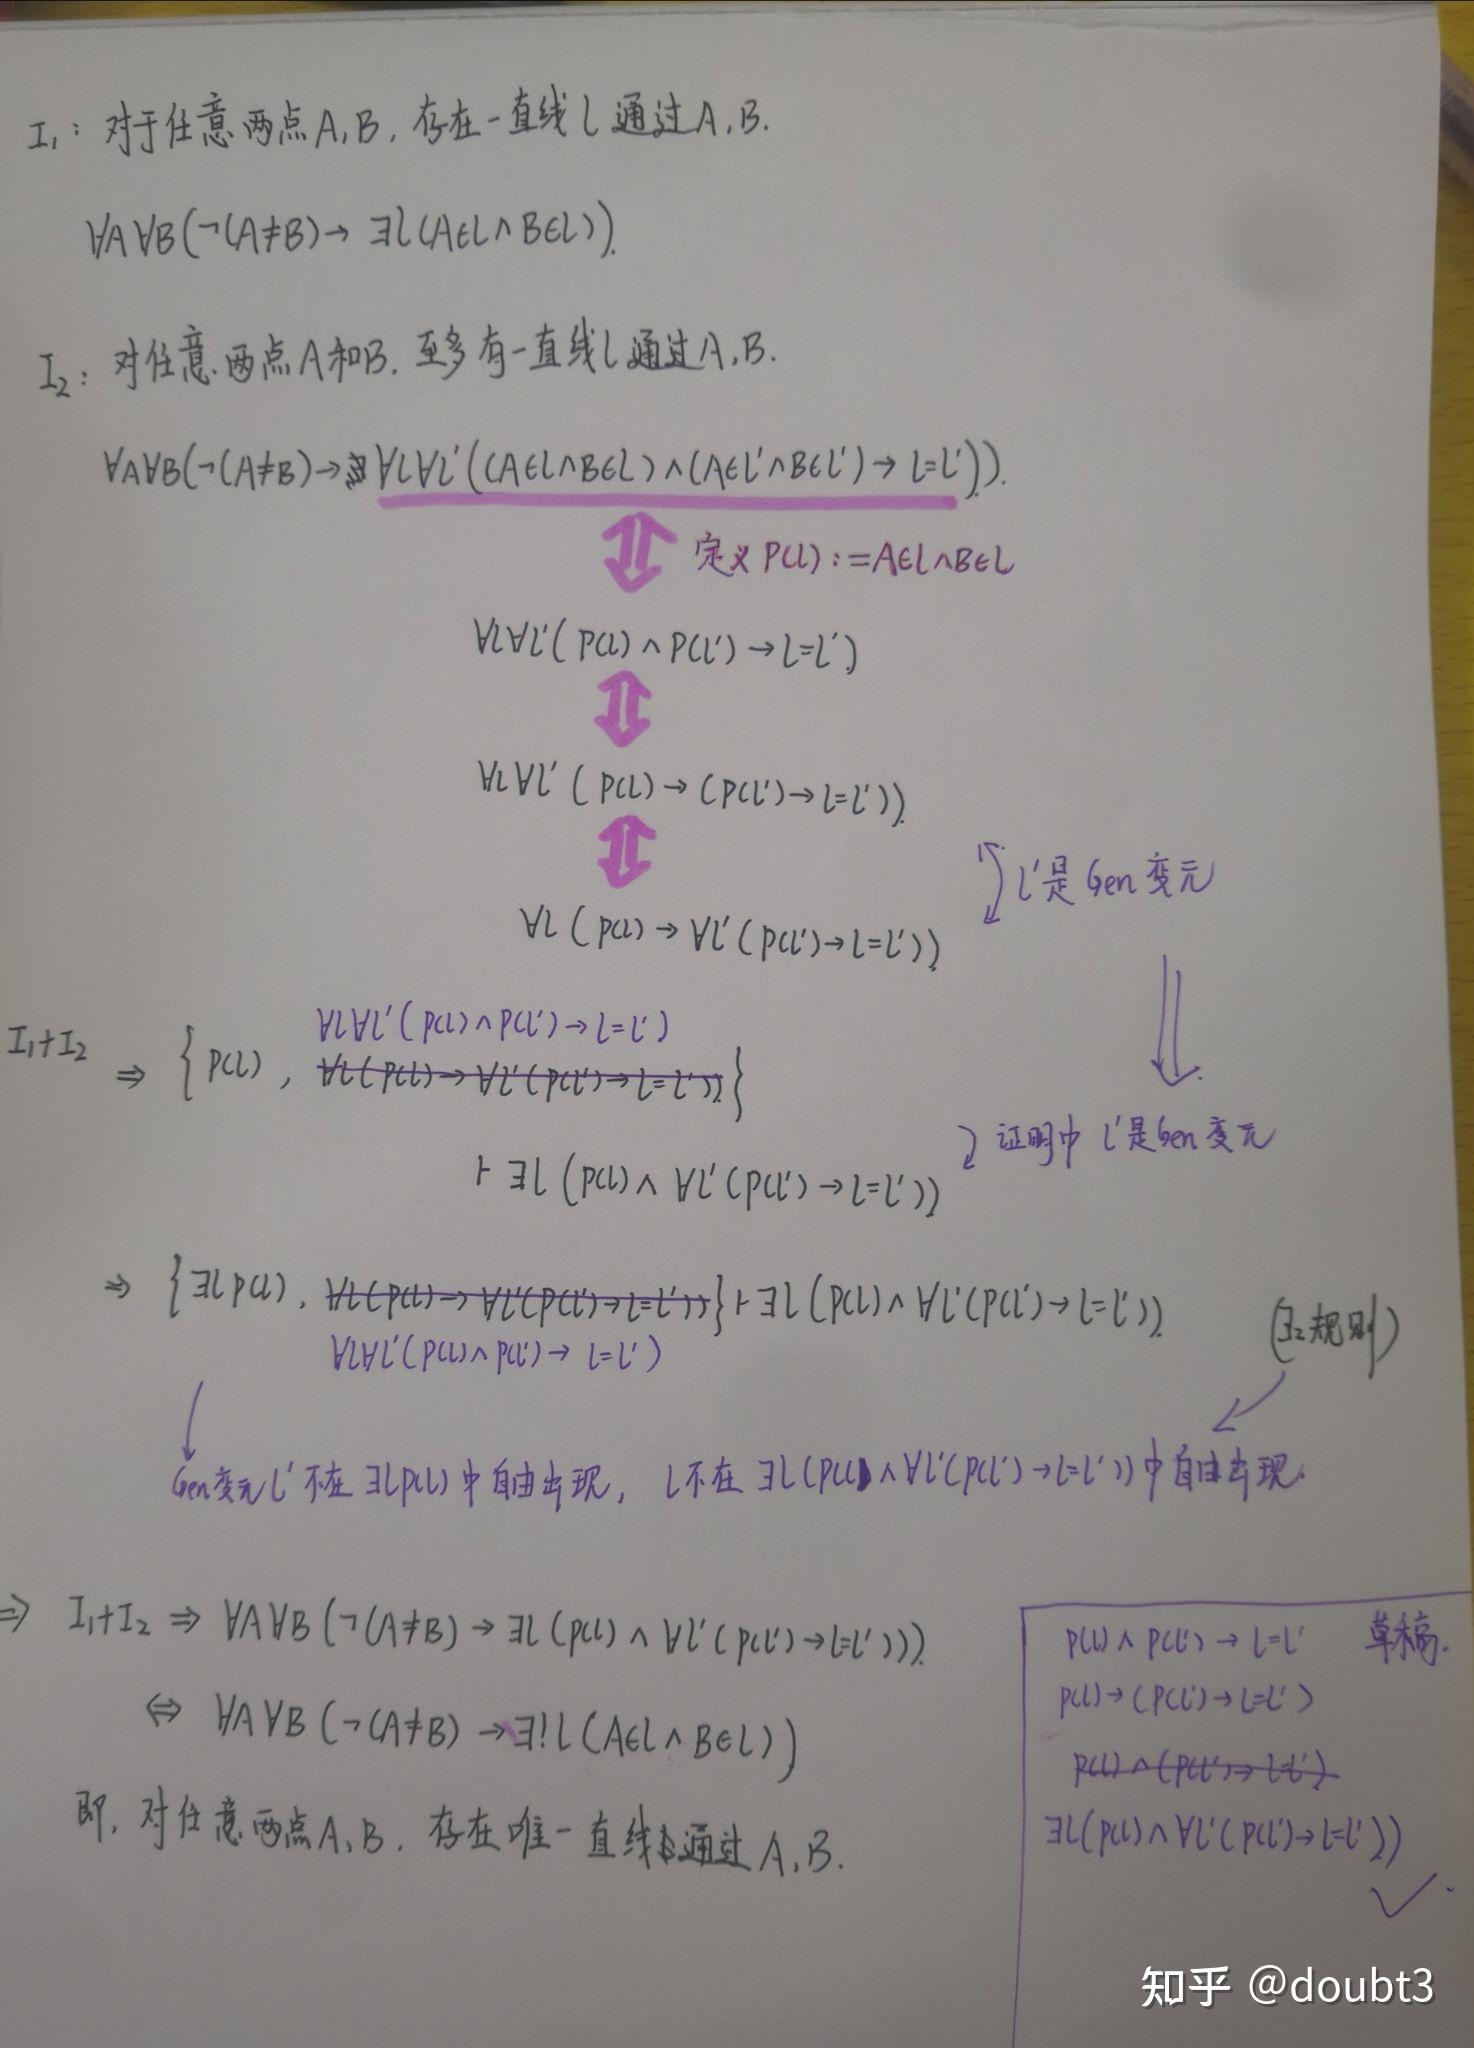 I₁: 对于任意两点A,B, 存在一直线l通过A,B.
∀A∀B(¬(A≠B)→∃l(A∈l∧B∈l)).
I₂: 对任意两点A和B. 至多有一直线l通过A,B.
∀A∀B(¬(A≠B)→∀l∀l′((A∈l∧B∈l)∧(A∈l′∧B∈l′)→l=l′)).
定义P(l):=A∈l∧B∈l
∀l∀l′(P(l)∧P(l′)→l=l′)
∀l∀l′(P(l)→(P(l′)→l=l′)).
l′是Gen变元
∀l(P(l)→∀l′(P(l′)→l=l′)).
∀l∀l′(P(l)∧P(l′)→l=l′)
I₁+I₂ ⇒ {P(l), ∀l(P(l)→∀l′(P(l′)→l=l′))}
证明中l′是Gen变元
⊢∃l(P(l)∧∀l′(P(l′)→l=l′)).
⇒ {∃lP(l), ∀l(P(l)→∀l′(P(l′)→l=l′))}⊢∃l(P(l)∧∀l′(P(l′)→l=l′)). (∃₂规则)
∀l∀l′(P(l)∧P(l′)→l=l′)
Gen变元l′不在∃lP(l)中自由出现, l不在∃l(P(l)∧∀l′(P(l′)→l=l′))中自由出现.
⇒ I₁+I₂⇒∀A∀B(¬(A≠B)→∃l(P(l)∧∀l′(P(l′)→l=l′))).
⇔ ∀A∀B(¬(A≠B)→∃!l(A∈l∧B∈l))
即, 对任意两点A,B, 存在唯一直线通过A,B.
P(l)∧P(l′)→l=l′ 草稿.
P(l)→(P(l′)→l=l′)
P(l)∧(P(l′)→l=l′)
∃l(P(l)∧∀l′(P(l′)→l=l′))
✓
知乎 @doubt3